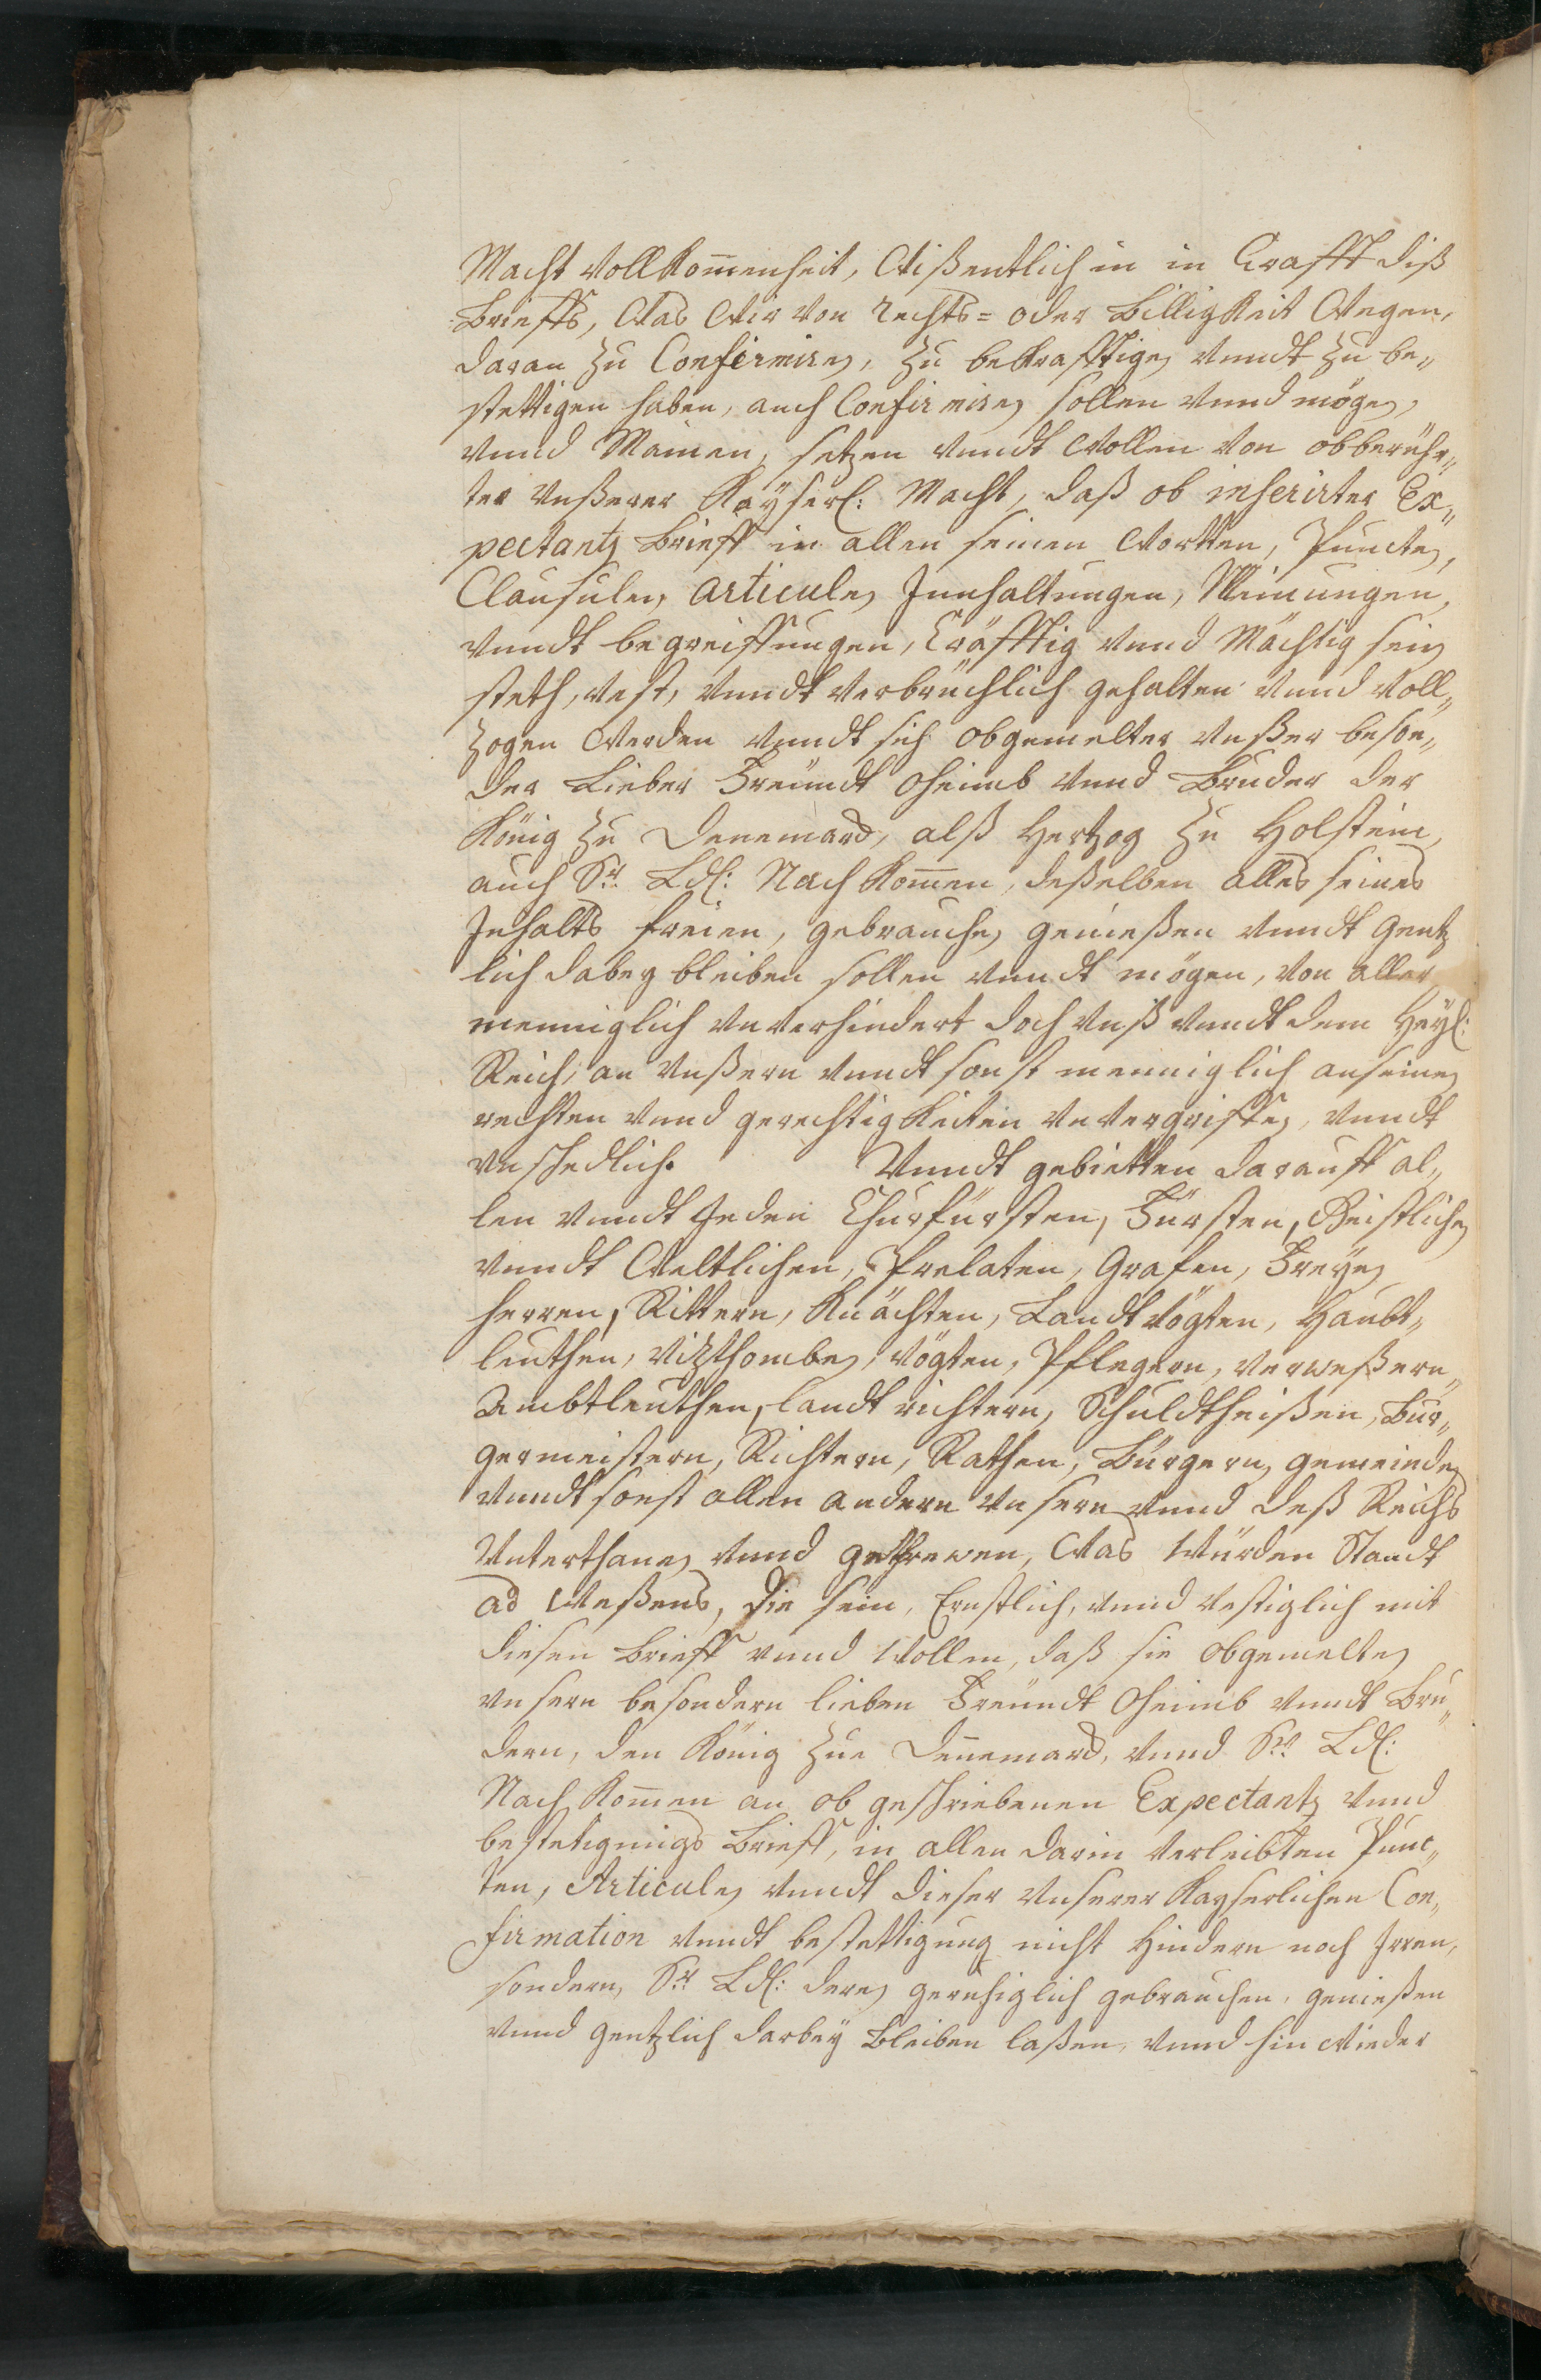 Macht Vollkom̃enheit, Wißentlich in in Crafft diß
Brieffs, Was Wir von Rechts= oder Billigkeit Wegen,
daran zu Confirmiren, zu bekrafftigen vnndt zu be„
stettigen haben, auch Confirmiren sollen vnnd mögen,
vnnd Meinen, setzen vnndt Wollen von obberühr„
ter Vnßerer Kaÿserl: Macht, daß ob inserirter Ex„
pectantz Brieff in allen seinen Wortten, Puncten,
Clausulen, articulen Innhaltungen, Meinungen,
vnndt begreiffungen, Cräfftig vnnd Mächtig sein
steth, vest, vnndt verbrüchlich gehalten vnnd voll„
zogen Werden vnndt sich obgemelter Vnßer beson„
der Lieber Freündt Oheimb vnnd Bruder der
König zu Denemarck, alß Hertzog zu Holstein,
auch Sr. Ld: Nachkom̃en, deßelben alles seines
Inhalts freien, gebrauchen genießen vnndt gentz
lich dabey bleiben sollen vnndt mögen, von aller
menniglich vnverhindert doch Vnß vnndt dem Heyl:
Reich, an Vnßern vnndt sonst menniglich an seinen
rechten vnnd gerechtigkeiten vnvergriffen, vnndt
vnschedlich. Vnndt gebietten darauff al„
len vnndt Jeden Churfürsten, Fürsten, Geistlichen
vnndt Weltlichen, Prelaten, Grafen, Freyen
herren, Rittern, Knächten, Landt Vögten, Haubt„
leuthen, Vizthomben, Vögten, Pflegern, Verweßern„
Ambtleuthen, landt richtern, Schuldtheißen, Bur„
germeistern, Richtern, Rathen, Bürgern, gemeinden
vnndt sonst allen andern Vnsern vnnd deß Reichs
Vnterthanen vnnd gethrewen, Was Würden Standt
ad Weßens, die sein, Ernstlich, vnnd vestiglich mit
diesen Brieff vnnd Wollen, daß sie obgemelten
Vnsern besondern lieben Freündt Oheimb vnndt Bru„
dern, den König zue Dennemarck, vnnd Sr. Ld:
Nachkom̃en an ob geschriebenen Expectantz vnnd
bestetigungs Brieff, in allen darin verleibten Punc„
ten, Articulen vnndt dieser Vnserer Kayserlichen Con„
firmation vnndt bestettigung nicht Hindern noch Irren,
sondern, Sr. Ld: deren geruhiglich gebrauchen, genießen
vnnd gentzlich darbeÿ Bleiben laßen, vnnd hin wieder